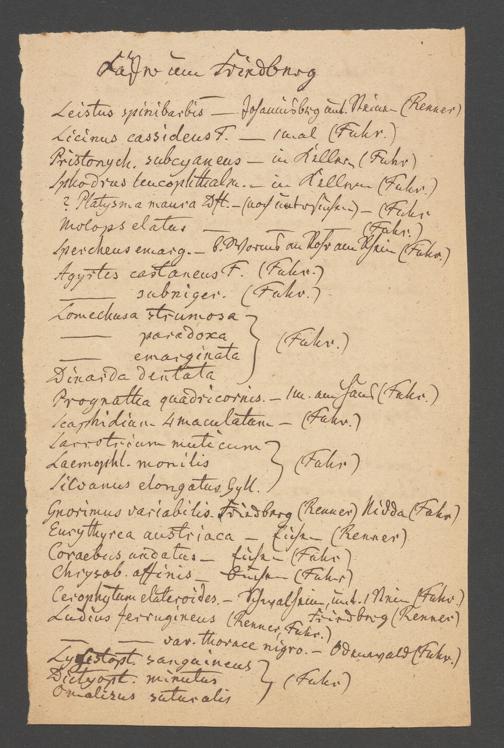 Käfer um Friedberg
Leistus spinibarbis — Johannisberg unt. Steinen (Renner)
Licinus cassideus F. — 1mal (Fuhr.)
Pristonych. subcyaneus — in Kellern (Fuhr)
Sphodrus leucophthalm. — in Kellern (Fuhr.)
? Platysma maura Dft. — (noch untersuchen) — (Fuhr
Molops elatus — (Fuhr.)
Spercheus emarg. — b. Worms am Rhein (Fuhr.)
Agyrtes castaneus F. (Fuhr.)
— subniger. (Fuhr.)
Lomechusa strumosa
— paradoxa (Fuhr.)
— emarginata
Dinarda dentata
Prognatha quadricornis. — 1m. am (Fuhr.)
Scaphidium 4maculatum — (Fuhr.)
Sarrotrium muticum
Laemophl. monilis (Fuhr)
Silvanus elongatus Gyll.
Gnorimus variabilis. Friedberg (Renner) Nidda (Fuhr)
Eurythyrea austriaca — Eichen (Renner)
Coraebus undatus — Eichen (Fuhr)
Chrysob. affinis — Buchen (Fuhr)
Cerophytum elateroides. — Schwalheim, unt. Stein (Fuhr.)
Ludius ferrugineus (Renner, Fuhr.) Friedberg (Renner)
— — var. thorace nigro. — Odenwald (Fuhr.)
sanguineus
Dictyopt. minutus (Fuhr)
Omalisus suturalis